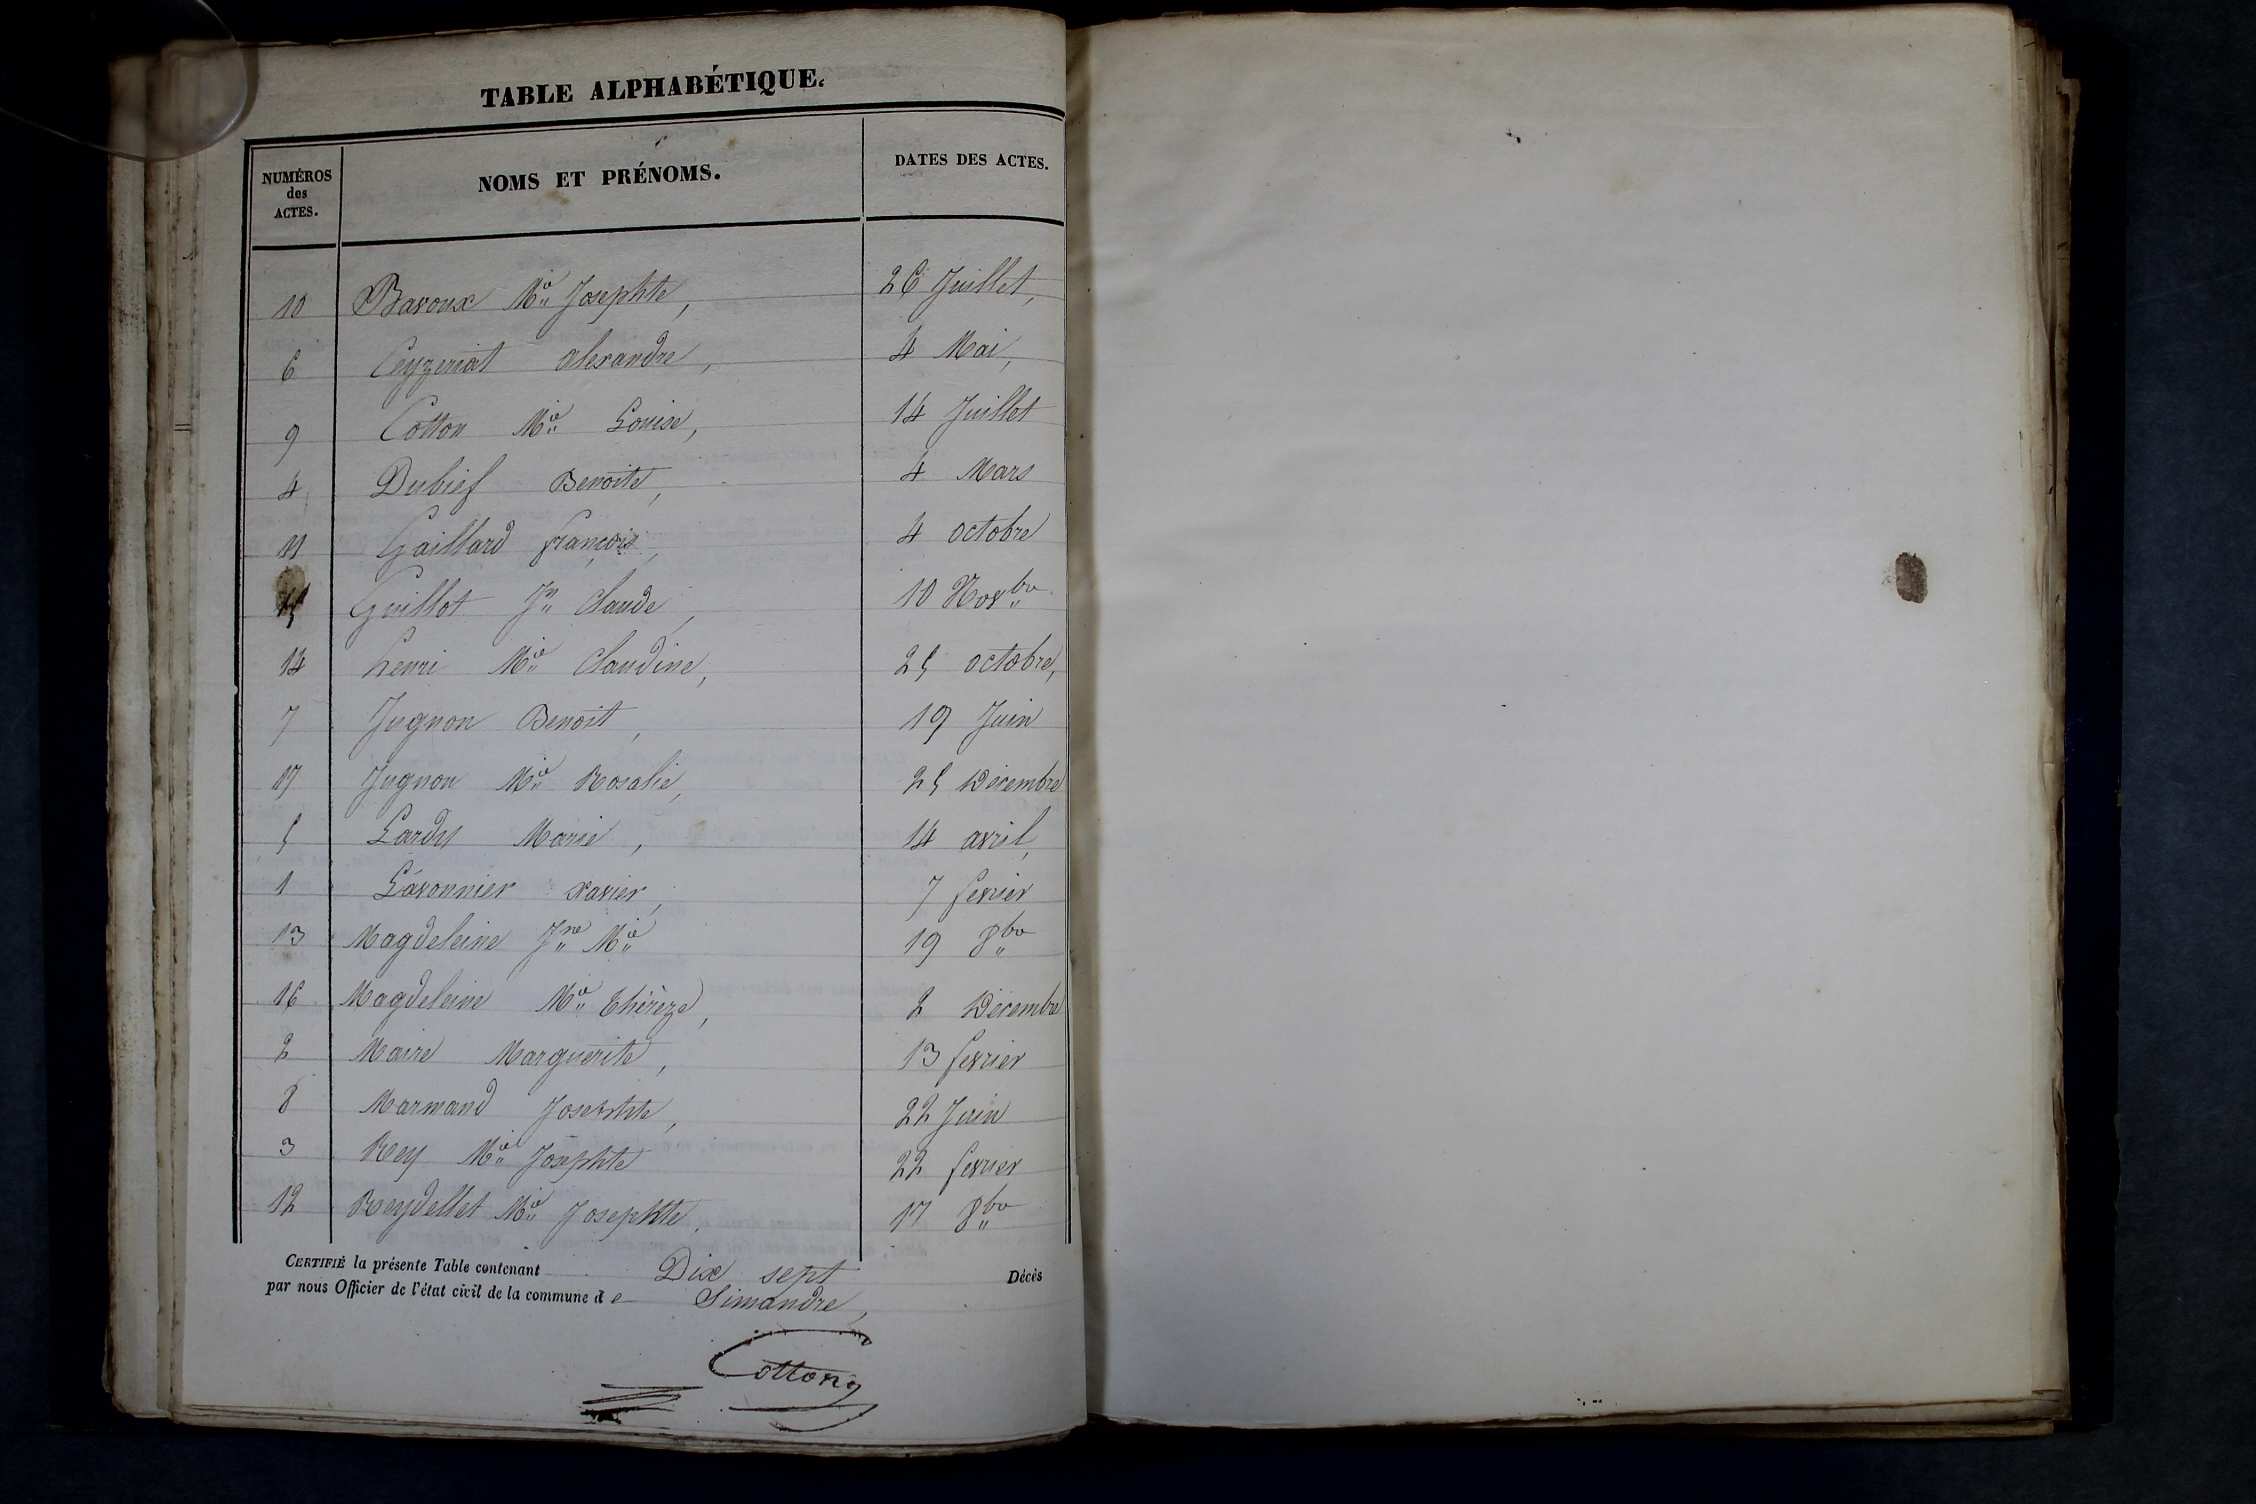 TABLE ALPHABÉTIQUE.
NUMÉROS des ACTES. NOMS ET PRÉNOMS. DATES DES ACTES.
10 Bavoux Mie Josephte, 26 Juillet,
6 Ceyzeriat alexandre, 4 Mai,
9 Cotton Mie Louise, 14 Juillet
4 Dubief Benoite, 4 Mars
11 Gaillard françois, 4 octobre
15 Guillot Jn Claude, 10 Novbre
14 henri Mie Claudine, 25 octobre,
7 Jugnon Benoit, 19 Juin
17 Jugnon Mie Rosalie, 25 Décembre
5 Lardy Marie, 14 avril,
1 Lavonnier xavier, 7 fevrier
13 Magdeleine Jne Mie 19 8bre
16 Magdeleine Mie thérèze, 2 Décembre
2 Maire Marguerite, 13 fevrier
8 Marmand Josephte, 22 Juin
3 Rey Mie Josephte 22 fevrier
12 Reydellet Mie Josephte, 17 8bre
CERTIFIÉ la présente Table contenant Dix sept Décès
par nous Officier de l'état civil de la commune de Simandre,
Cotton